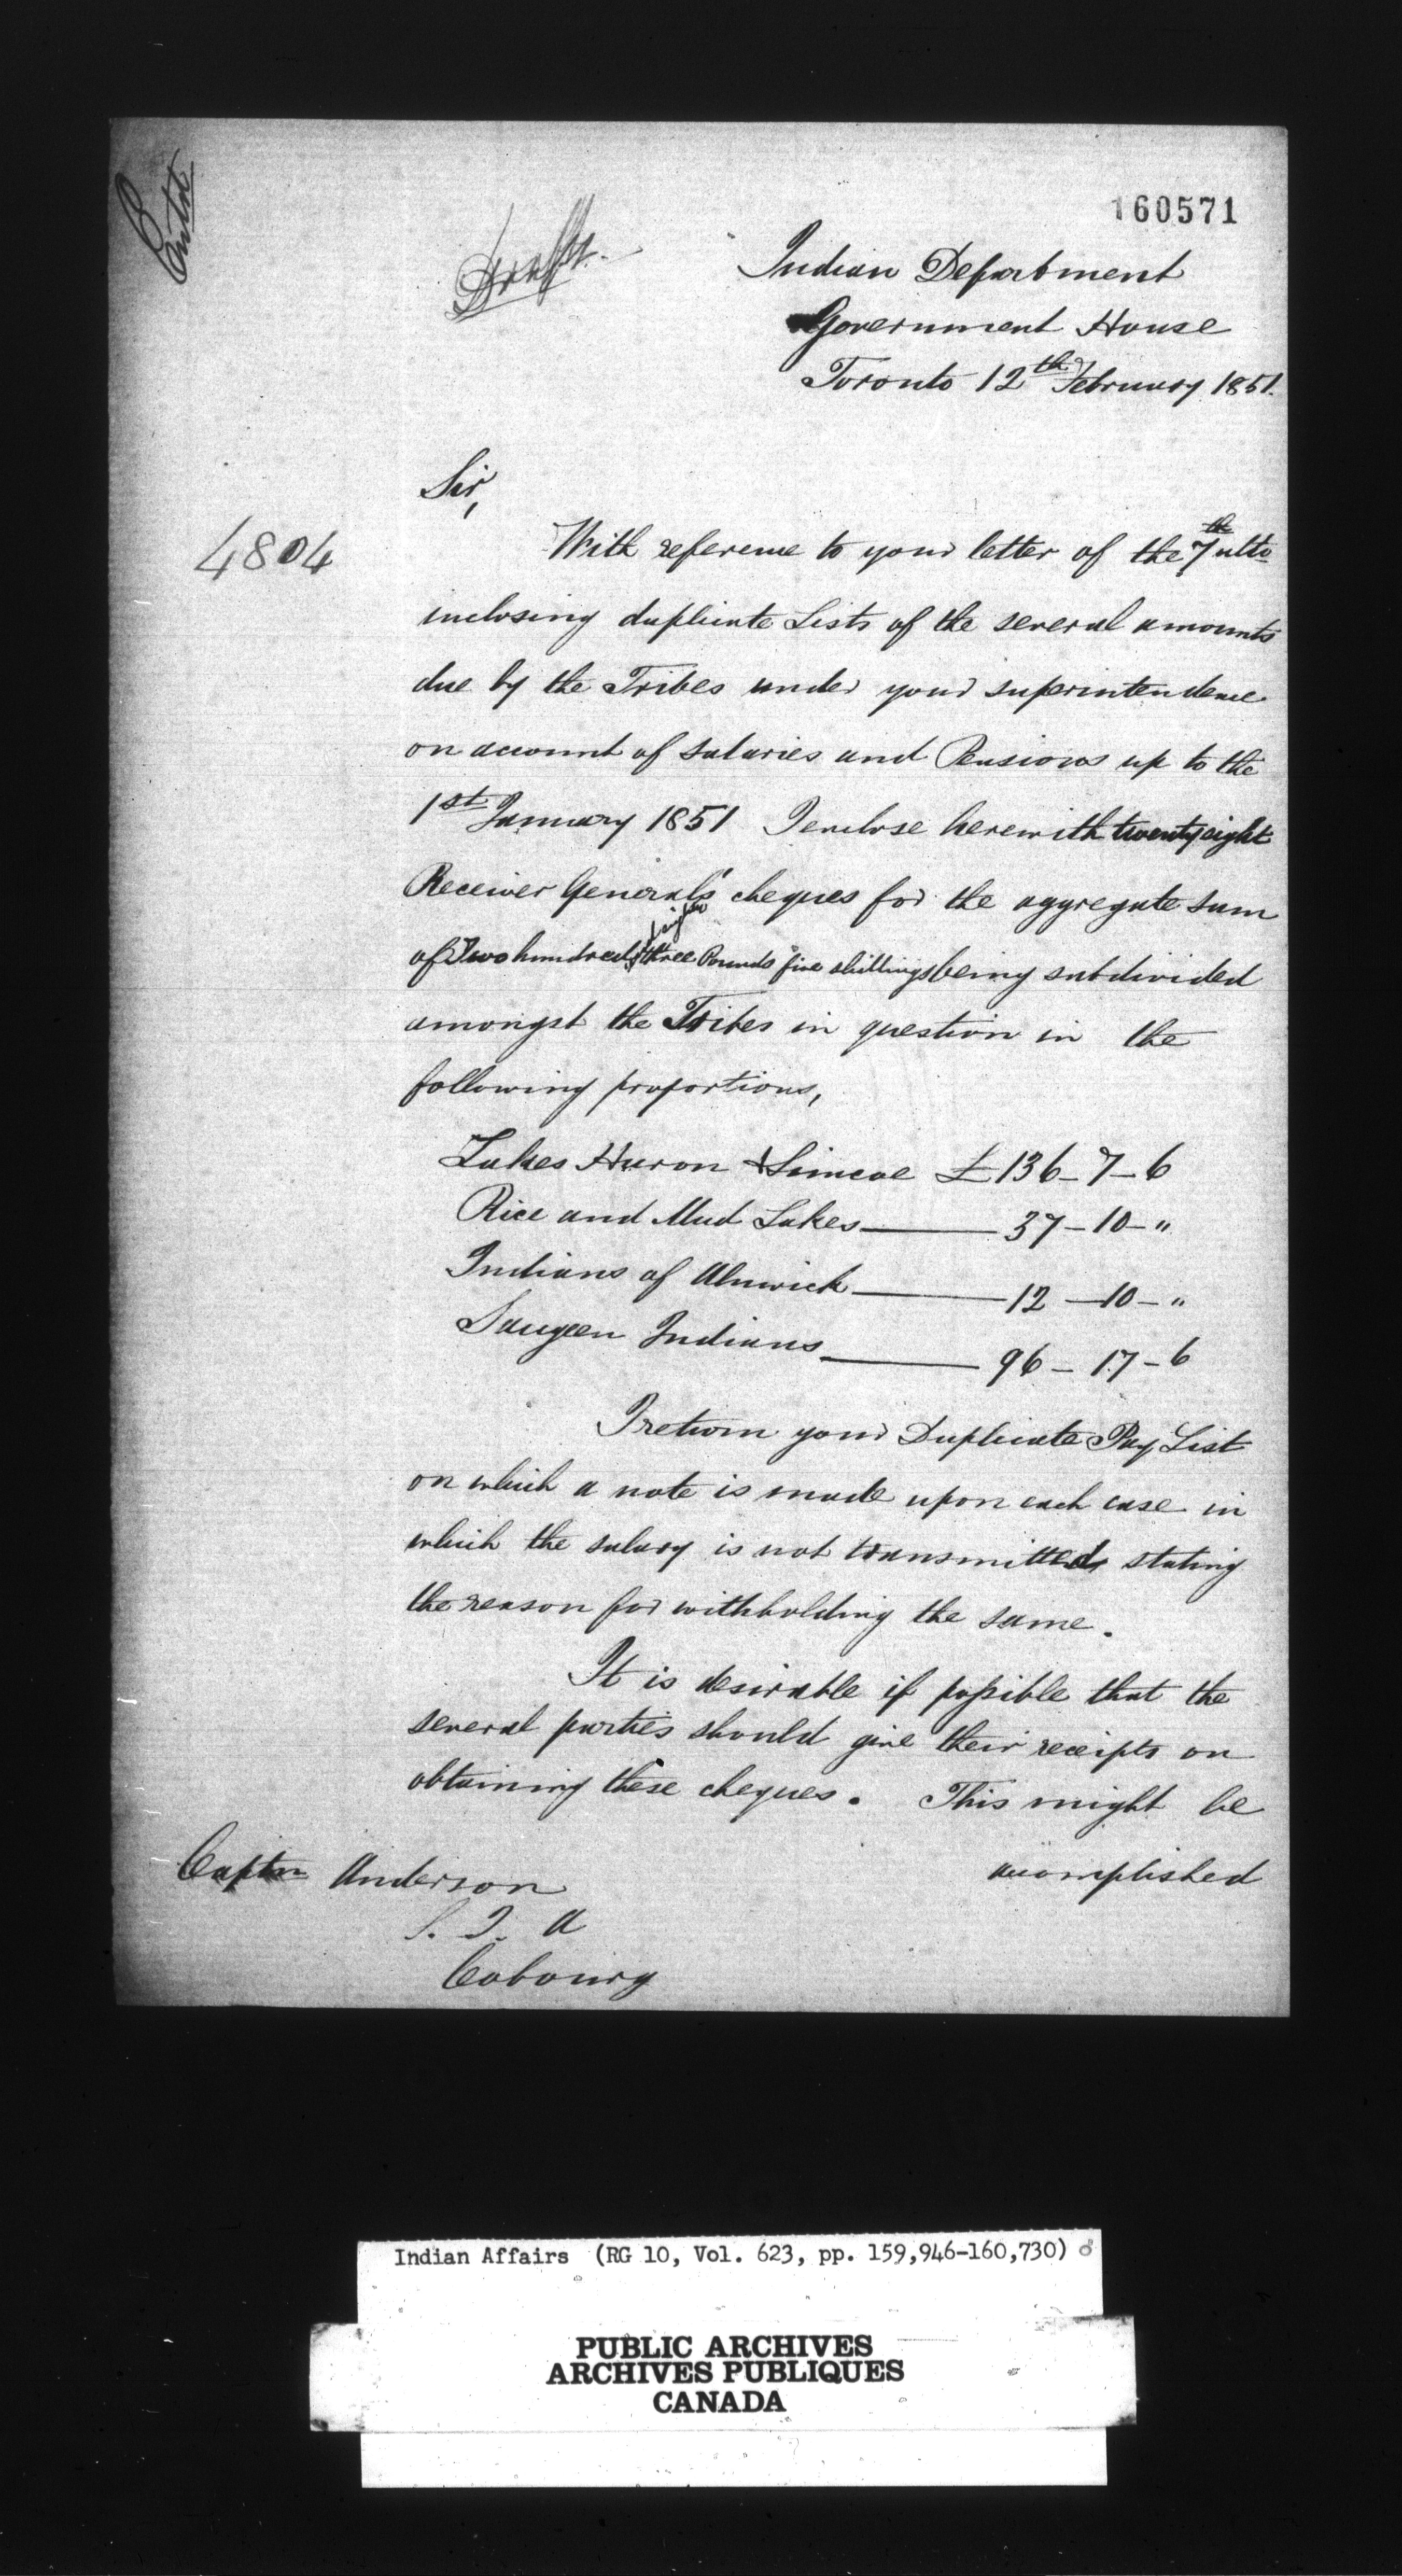 Entd
160571
Draft.
Indian Department
Government House
Toronto 12th February 1851.
Sir,
4804
With reference to your letter of the 7th ulto
inclosing duplicate Lists of the several amounts
due by the Tribes under your superintendence
on account of salaries and Pensions up to the
1st January 1851 I enclose herewith twenty eight
Receiver General's cheques for the aggregate sum
of Two hundred & eighty three Pounds five shillings being subdivided
amongst the Tribes in question in the
following proportions,
Lakes Huron & Simcoe £136-7-6
Rice and Mud Lakes — 37-10-"
Indians of Alnwick — 12-10-"
Saugeen Indians — 96-17-6
I return your Duplicate Pay List
on which a note is made upon each case in
which the salary is not transmitted, stating
the reason for withholding the same.
It is desirable if possible that the
several parties should give their receipts on
obtaining these cheques. This might be
accomplished
Captn Anderson
S. I. A
Cobourg
Indian Affairs (RG 10, Vol. 623, pp. 159,946-160,730)
PUBLIC ARCHIVES
ARCHIVES PUBLIQUES
CANADA